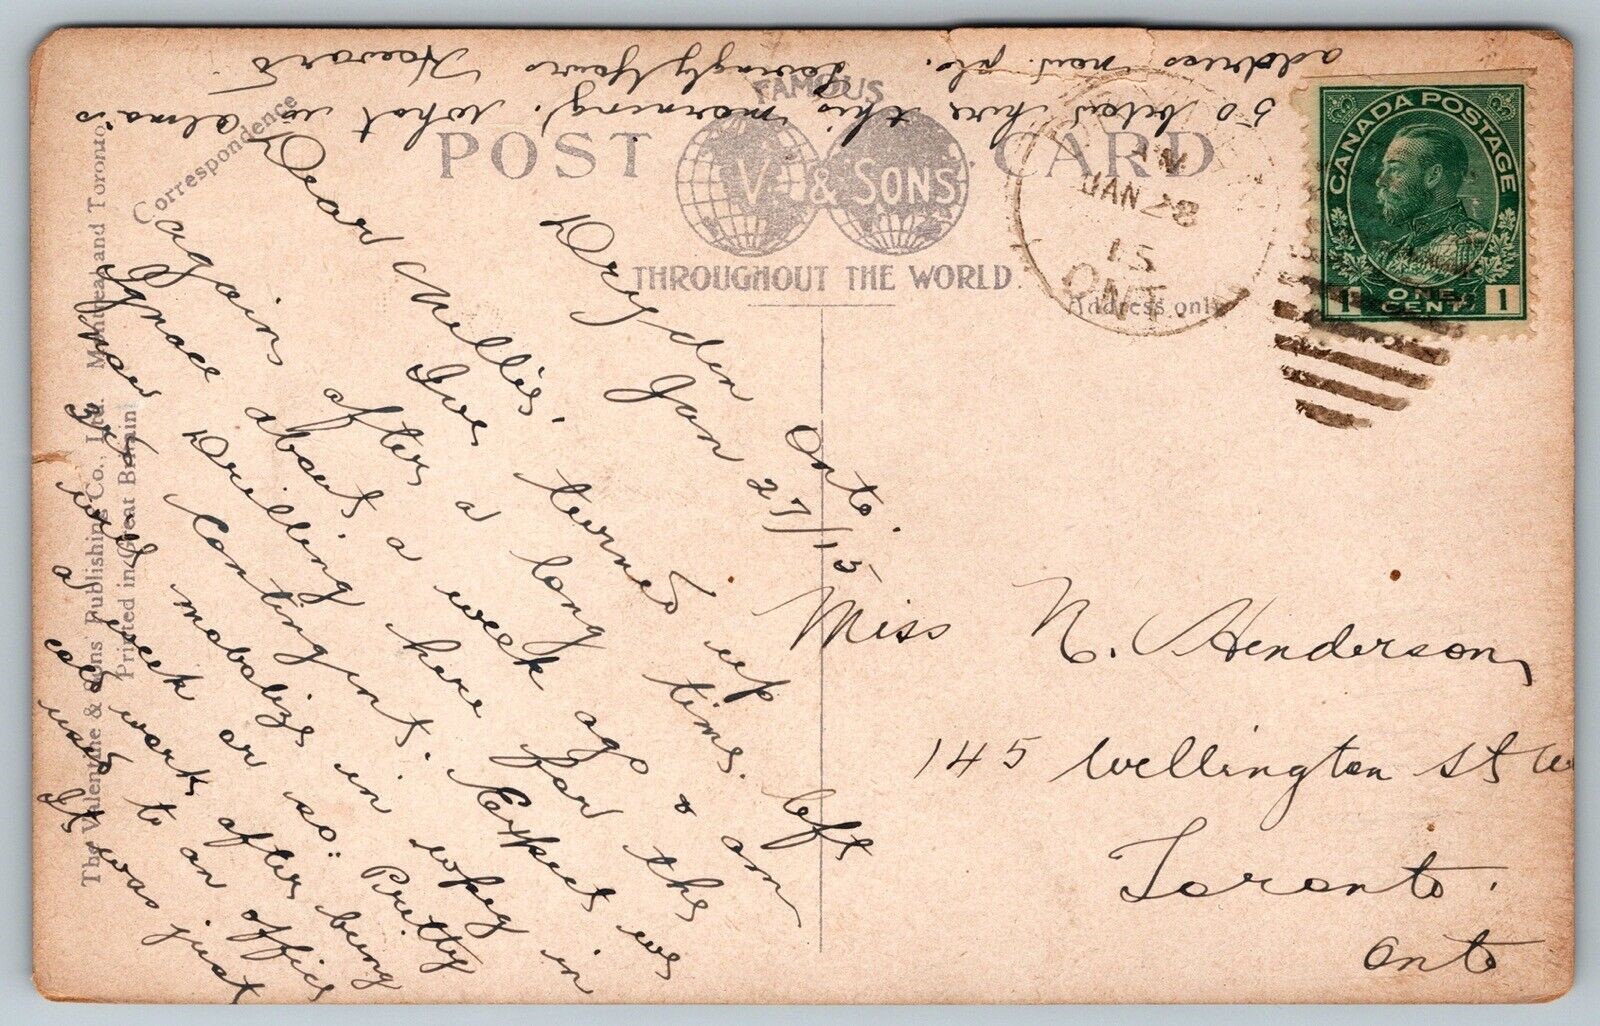 POST CARD
FAMOUS
V. & SONS
THROUGHOUT THE WORLD.
Correspondence
Address only
The Valentine & Sons' Publishing Co., Ltd. Montreal and Toronto.
Printed in Great Britain
CANADA POSTAGE
1 ONE CENT 1
JAN 28
15
ONT
Dryden Onto.
Jan 27/15
Dear Nellie,
Ive turned up
again after a long time. left
Ignace about a week ago & am
Drilling here for the
Contingent. Expect we
will mobalize in wpeg in
a week or so: Pretty
cold work after being
used to an office
It was just
50 below here this morning. What is Alma's
address now. pls. Lovingly Yours Howard
Miss N. Henderson,
145 Wellington St W
Toronto.
Ont